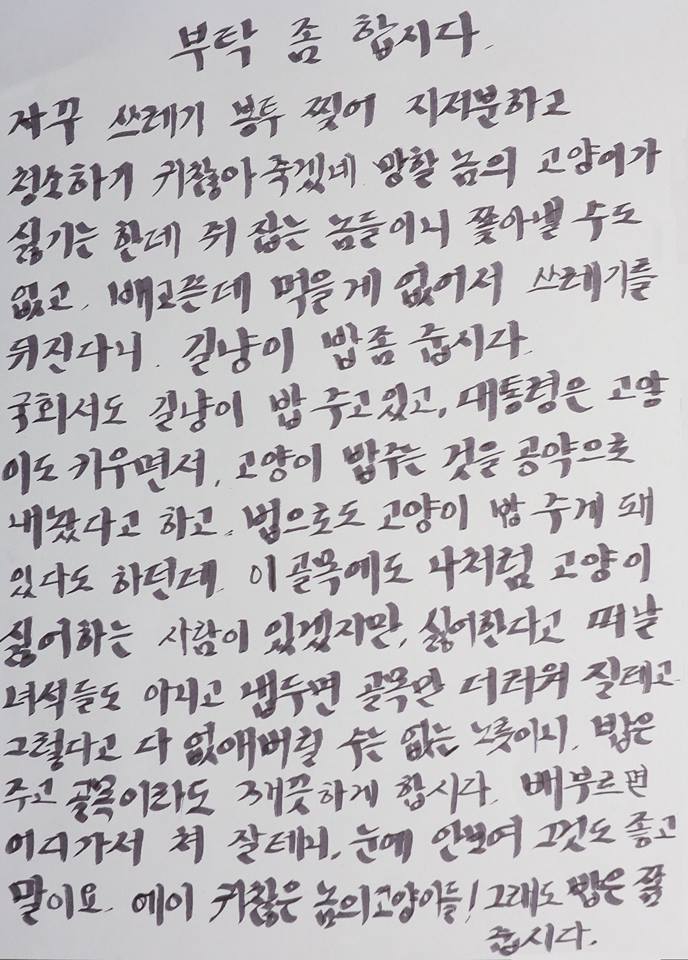 부탁 좀 합시다.
자꾸 쓰레기 봉투 찢어 지저분하고
청소하기 귀찮아 죽겠네 망할 놈의 고양이가
싫기는 한데 쥐 잡는 놈들이니 쫓아낼 수도
없고, 배고픈데 먹을게 없어서 쓰레기를
뒤진다니. 길냥이 밥좀 줍시다.
국회서도 길냥이 밥 주고있고, 대통령은 고양
이도 키우면서, 고양이 밥주는 것을 공약으로
내놨다고 하고, 법으로도 고양이 밥 주게 돼
있다도 하던데. 이 골목에도 나처럼 고양이
싫어하는 사람이 있겠지만, 싫어한다고 떠날
녀석들도 아니고 냅두면 골목만 더러워 질테고
그렇다고 다 없애버릴 수는 없는 노릇이니, 밥은
주고 골목이라도 깨끗하게 합시다. 배부르면
어디가서 쳐 잘테니, 눈에 안보여 그것도 좋고
말이요. 에이 귀찮은 놈의고양이들! 그래도 밥은 쫌
줍시다.